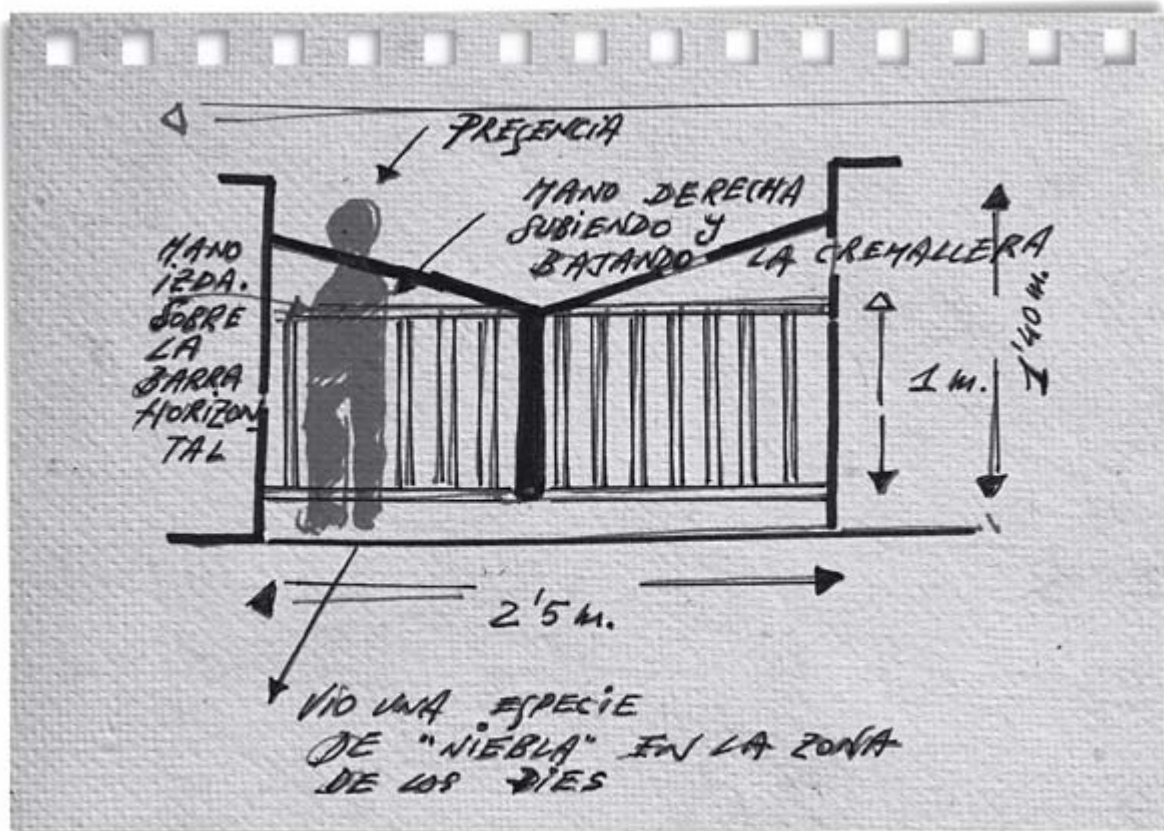 PRESENCIA
MANO DERECHA
SUBIENDO Y
BAJANDO LA CREMALLERA
MANO
IZDA.
SOBRE
LA
BARRA
HORIZON
TAL
1 m.
1'40 m.
2'5 m.
VIO UNA ESPECIE
DE "NIEBLA" EN LA ZONA
DE LOS PIES